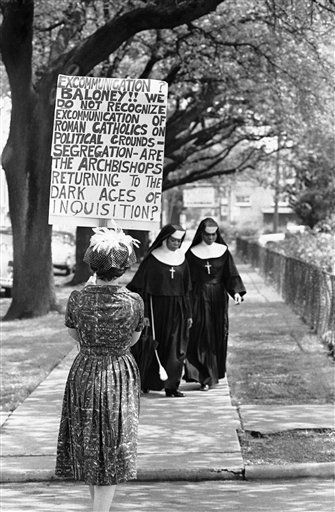 EXCOMMUNICATION?
BALONEY!! WE
DO NOT RECOGNIZE
EXCOMMUNICATION OF
ROMAN CATHOLICS ON
POLITICAL GROUNDS-
SEGREGATION-ARE
THE ARCHBISHOPS
RETURNING TO THE
DARK AGES OF
INQUISITION?